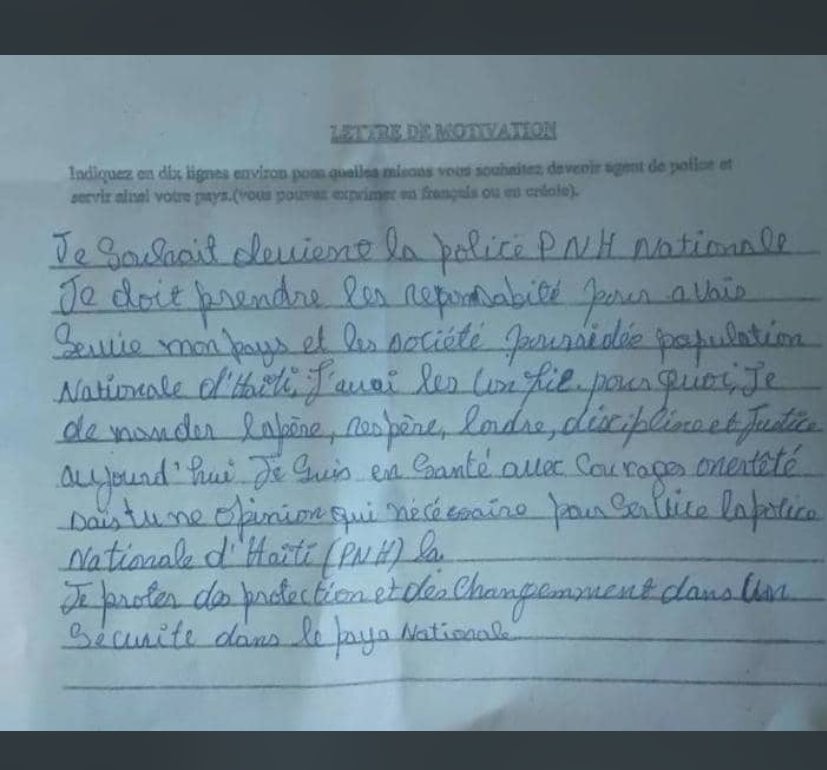 LETTRE DE MOTIVATION
Indiquez en dix lignes environ pour quelles raisons vous souhaitez devenir agent de police et
servir ainsi votre pays.(vous pouvez exprimer en français ou en créole).
Je Souhait devient la police PNH Nationale
Je doit prendre les reponsabité pour avais
Servie mon pays et les société pouraidée population
Nationale d'Haïti, J'avai les Un fie pourquoi, Je
demander lapère, respère, lordre, discipline et Justice
aujourd'hui Je Suis en Santé avec Courages onertêté
une Opinion qui nécéssaire pour Service la police
Nationale d'Haïti (PNH) la
Je proter des protection et des Changemment dans Un
Sécurite dans le pays Nationale